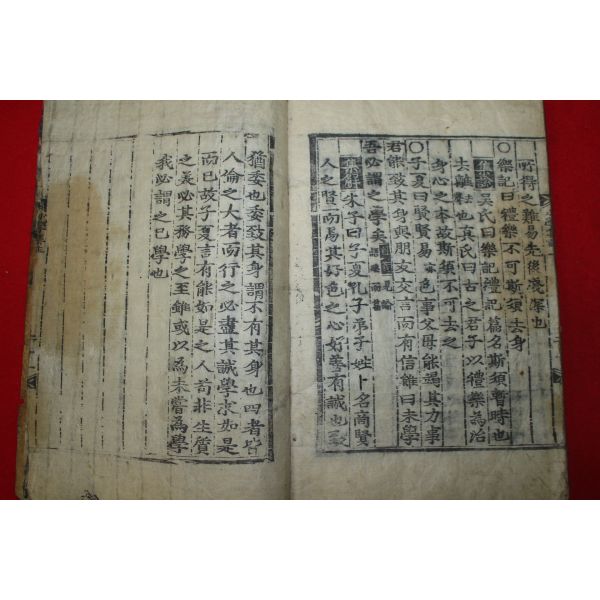 所得之難易先後淺深也
○樂記曰禮樂不可斯須去身
集說吳氏曰樂記禮記篇名斯須暫時也
去離也眞氏曰古之君子以禮樂為治
身心之本故斯須不可去之
○子夏曰賢賢易色事父母能竭其力事
君能致其身與朋友交言而有信雖曰未學
吾必謂之學矣
集解朱子曰子夏孔子弟子姓卜名商賢
人之賢而易其好色之心好善有誠也致
猶委也委致其身謂不有其身也四者皆
人倫之大者而行之必盡其誠學求如是
而已故子夏言有能如是之人苟非生質
之美必其務學之至雖或以為未嘗為學
我必謂之已學也